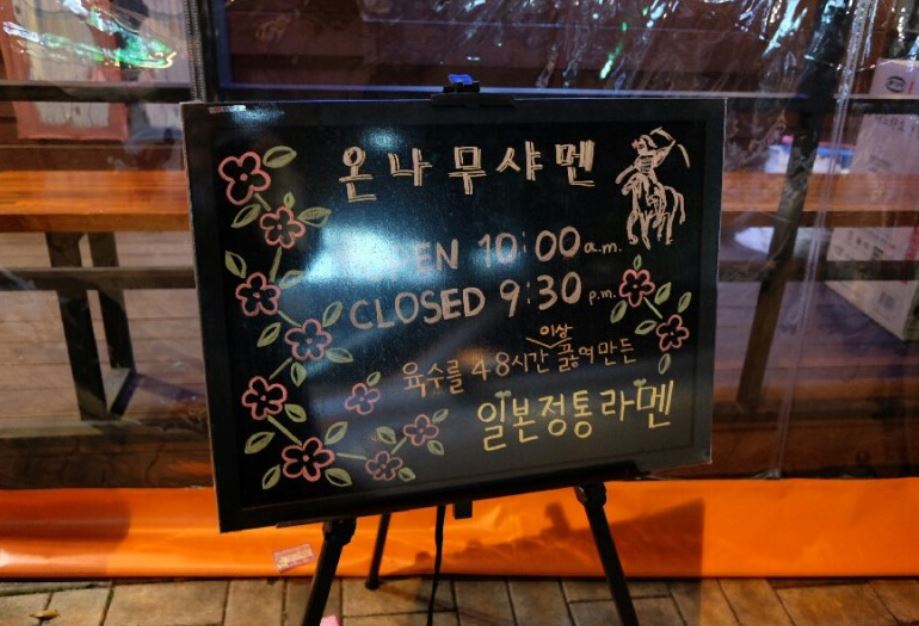 온나 무샤멘
OPEN 10:00 a.m.
CLOSED 9:30 p.m.
이상
육수를 48시간 끓여 만든
일본정통라멘